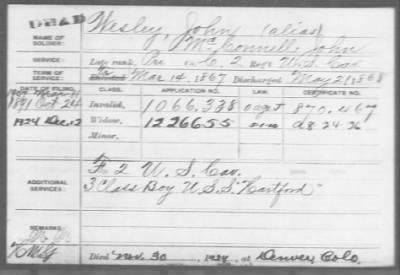 DEAD
Wesley, John (alias)
NAME OF SOLDIER: McConnell, John
SERVICE: Late rank, Pri in Co. C, 2 Reg't U.S. Cav.
TERM OF SERVICE: Enlisted Mar 14, 1867 Discharged May 21 1868
DATE OF FILING. CLASS. APPLICATION NO. LAW. CERTIFICATE NO.
1891 Oct 24 Invalid, 1066.338 870.467
1924 Dec. 2 Widow, 1226655
Minor,
F 2 U.S. Cav.
ADDITIONAL SERVICES: 3 Class Boy U.S.S. "Hartford"
REMARKS:
Died Nov. 30, 1924, at Denver, Colo.